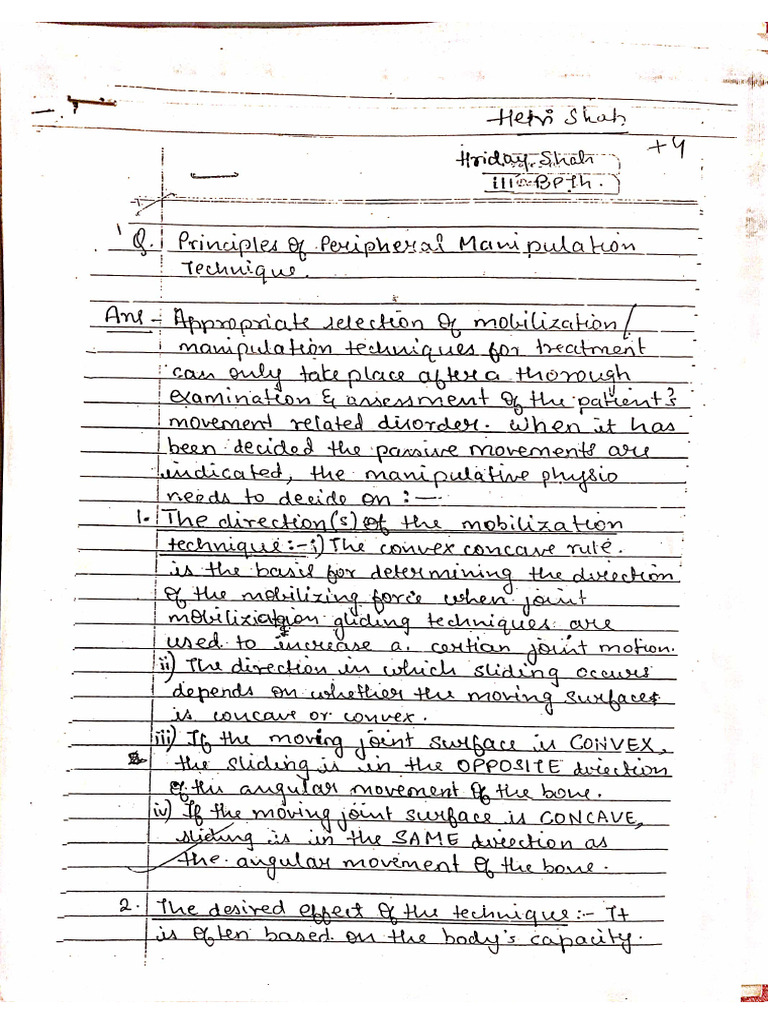 Hetvi Shah
+4
Hriday Shah
III BPTh.
Q. Principles of Peripheral Manipulation
Technique.
Ans - Appropriate selection of mobilization/
manipulation techniques for treatment
can only take place after a thorough
examination & assessment of the patient's
movement related disorder. When it has
been decided the passive movements are
indicated, the manipulative physio
needs to decide on :-
1. The direction(s) of the mobilization
technique :- i) The convex concave rule.
is the basis for determining the direction
of the mobilizing force when joint
gliding techniques are
used to increase a certian joint motion.
ii) The direction in which sliding occurs
depends on whether the moving surface
is concave or convex.
iii) If the moving joint surface is CONVEX,
the sliding is in the OPPOSITE direction
of the angular movement of the bone.
iv) If the moving joint surface is CONCAVE,
sliding is in the SAME direction as
the angular movement of the bone.
2. The desired effect of the technique :- It
is often based on the body's capacity.